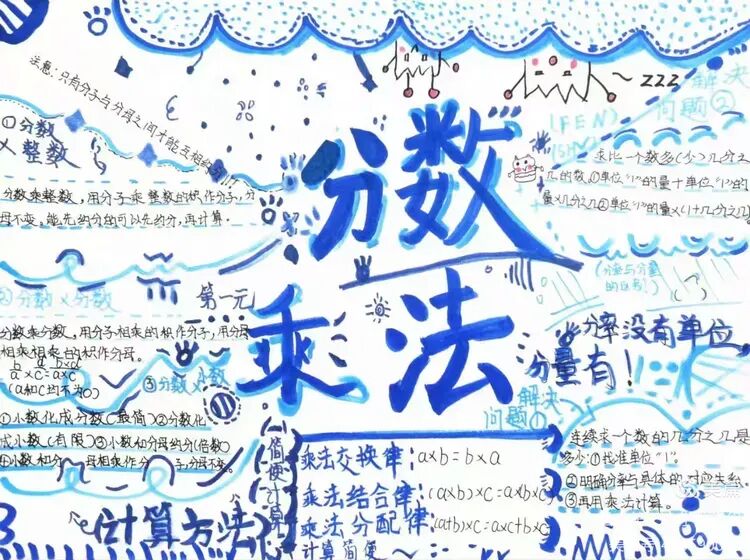 注意:只有分子与分母之间才能互相约分!!!
①分数
×整数
分数乘整数,用分子乘整数的积作分子,分
母不变。能先约分的可以先约分,再计算。
②分数×分数
分数乘分数,用分子相乘的积作分子,用分母
相乘相乘的积作分母。
b/a×d/c=b×d/a×c
(a和c均不为0)
③分数×小数
①小数化成分数(最简)②分数化
成小数(有限)③小数和分母约分(倍数)
④小数和分
母相乘作分
子,分母不变。
计算方法
第一元
分数
乘法
zzz
(FEN)
解决
问题②
求比一个数多(少)几分之
几的数。①单位"1"的量+单位"1"的
量×几分之几②单位"1"的量×(1+几分之几)
(分率与分量
的区别)
分率没有单位
分量有!
解决
问题①
连续求一个数的几分之几是
多少:①找准单位"1"。
②明确分率与具体的对应关系。
③再用乘法计算。
简便计算
乘法交换律:a×b=b×a
乘法结合律:(a×b)×c=a×(b×c)
乘法分配律:(a+b)×c=a×c+b×c
计算简便